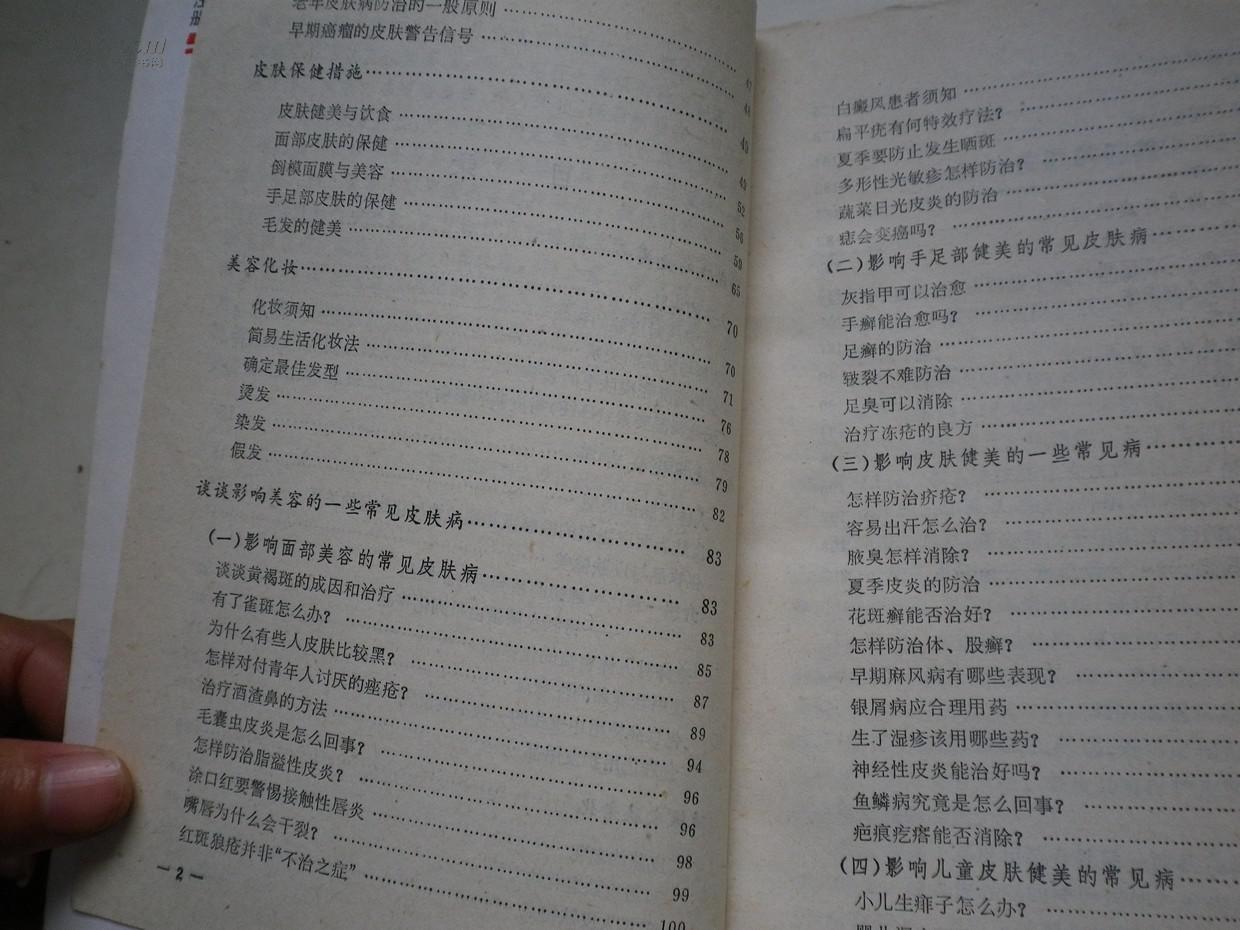 老年皮肤病防治的一般原则 …… 47
早期癌瘤的皮肤警告信号 …… 48
皮肤保健措施 …… 49
皮肤健美与饮食 …… 49
面部皮肤的保健 …… 52
倒模面膜与美容 …… 56
手足部皮肤的保健 …… 59
毛发的健美 …… 65
美容化妆 …… 70
化妆须知 …… 70
简易生活化妆法 …… 71
确定最佳发型 …… 76
烫发 …… 78
染发 …… 79
假发 …… 82
谈谈影响美容的一些常见皮肤病 …… 83
(一)影响面部美容的常见皮肤病 …… 83
谈谈黄褐斑的成因和治疗 …… 83
有了雀斑怎么办？ …… 85
为什么有些人皮肤比较黑？ …… 87
怎样对付青年人讨厌的痤疮？ …… 89
治疗酒渣鼻的方法 …… 94
毛囊虫皮炎是怎么回事？ …… 96
怎样防治脂溢性皮炎？ …… 96
涂口红要警惕接触性唇炎 …… 98
嘴唇为什么会干裂？ …… 99
红斑狼疮并非“不治之症” …… 100
— 2 —
白癜风患者须知 ……
扁平疣有何特效疗法？ ……
夏季要防止发生晒斑 ……
多形性光敏疹怎样防治？ ……
蔬菜日光皮炎的防治 ……
痣会变癌吗？ ……
(二)影响手足部健美的常见皮肤病 ……
灰指甲可以治愈 ……
手癣能治愈吗？ ……
足癣的防治 ……
皲裂不难防治 ……
足臭可以消除 ……
治疗冻疮的良方 ……
(三)影响皮肤健美的一些常见病 ……
怎样防治疥疮？ ……
容易出汗怎么治？ ……
腋臭怎样消除？ ……
夏季皮炎的防治 ……
花斑癣能否治好？ ……
怎样防治体、股癣？ ……
早期麻风病有哪些表现？ ……
银屑病应合理用药 ……
生了湿疹该用哪些药？ ……
神经性皮炎能治好吗？ ……
鱼鳞病究竟是怎么回事？ ……
疤痕疙瘩能否消除？ ……
(四)影响儿童皮肤健美的常见病 ……
小儿生痱子怎么办？ ……